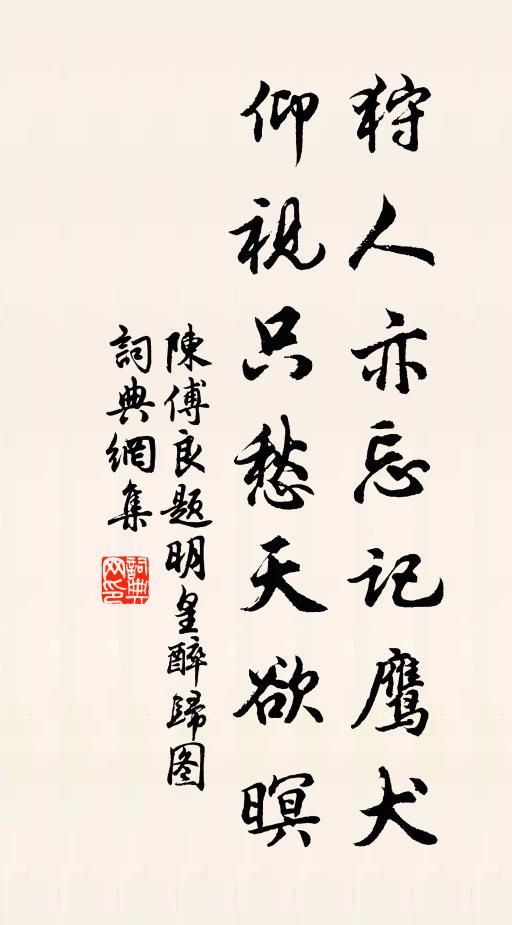 狩人亦忘记鹰犬
仰视只愁天欲暝
陳傅良题明皇醉歸图
詞典網集
詞典网印